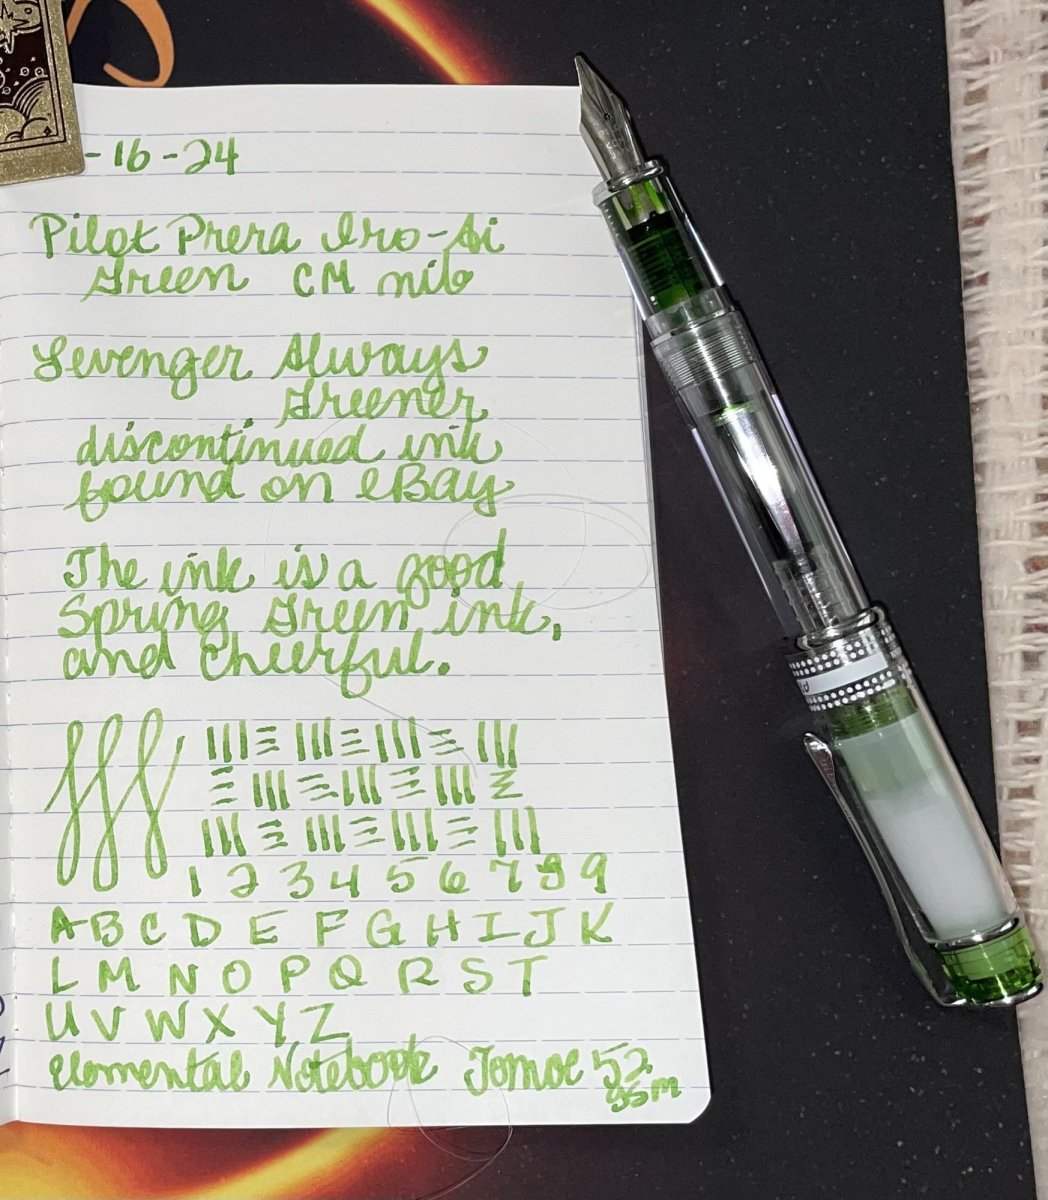 -16-24
Pilot Prera Iro-Ai
Green CM nib
Levenger Always
Greener
discontinued ink
found on eBay
The ink is a good
Spring Green ink,
and cheerful.
fff
1 2 3 4 5 6 7 8 9
A B C D E F G H I J K
L M N O P Q R S T
U V W X Y Z
Elemental Notebook Tomoe 52
gsm